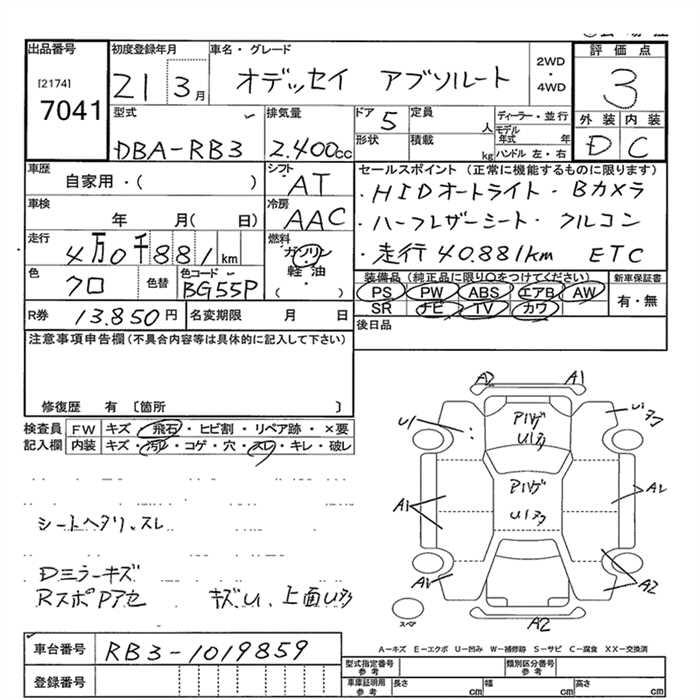 出品番号 初度登録年月 車名・グレード 2WD・4WD 評価点
[2174] 7041 21 3月 オデッセイ アブソルート 3
型式 排気量 ドア 定員 ディーラー・並行 外装 内装
DBA-RB3 2.400cc 5 人 モデル年式 年 D C
形状 積載 kg ハンドル 左・右
車歴 シフト セールスポイント (正常に機能するものに限ります)
自家用・( ) AT ・HIDオートライト・Bカメラ
車検 冷房
年 月( 日) AAC ・ハーフレザーシート・クルコン
走行 燃料
4万0千881km ガソリン ・走行40.881km ETC
色 色替 色コード 軽油 装備品 (純正品に限り○をつけてください) 新車保証書
クロ BG55P ( ) PS PW ABS エアB AW 有・無
SR TV カワ
R券 13.850円 名変期限 月 日 後日品
注意事項申告欄(不具合内容等は具体的に記入して下さい)
修復歴 有 〔箇所 〕
検査員 FW キズ・飛石・ヒビ割・リペア跡・×要
記入欄 内装 キズ・汚れ・コゲ・穴・スレ・キレ・破レ
A2 A1
U1
A1
A2
A2
スペア
シートヘタリ、スレ
Dミラーキズ
キズU、上面U
A−キズ E−エクボ U−凹み W−補修跡 S−サビ C−腐食 XX−交換済
車台番号 RB3-1019859
型式指定番号 参考 類別区分番号 参考
登録番号
車庫証明用 参考 長さ cm 幅 cm 高さ cm